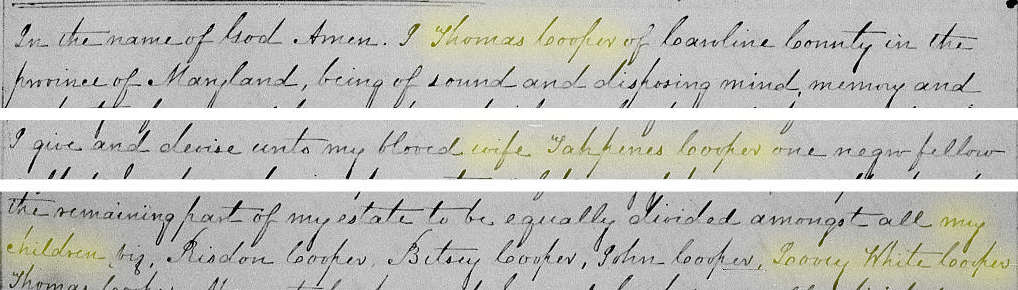 In the name of God Amen. I Thomas Cooper of Caroline County in the
province of Maryland, being of sound and disposing mind, memory and
I give and devise unto my bloved wife Tahpenes Cooper one negro fellow
the remaining part of my estate to be equally divided amongst all my
children viz, Risdon Cooper, Betsey Cooper, John Cooper, White Cooper
Thomas Cooper